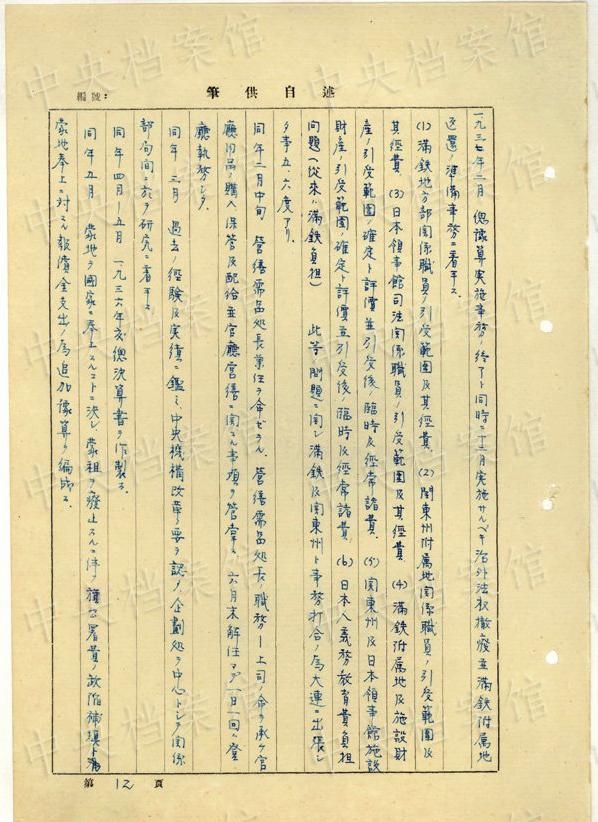 筆供自述
編號:
一九三七年二月 總豫算実施事務ノ終了ト同時ニ十二月実施サルベキ治外法权撤廢並滿鉄附属地
返還ノ準備事務ニ着手ス.
(1) 滿鉄地方部関係職員ノ引受範囲及其経費. (2) 関東州附属地関係職員ノ引受範囲及
其経費. (3) 日本領事館司法関係職員ノ引受範囲及其経費 (4) 滿鉄附属地及施設財
產ノ引受範囲ノ確定ト評價並引受後ノ臨時及経常諸費. (5) 関東州及日本領事館施設
財産ノ引受範囲ノ確定ト評價並引受後ノ臨時及経常諸費. (6) 日本人義務教育費負担
問題 (従來ハ滿鉄負担) 此等ノ問題ニ関シ滿鉄及関東州ト事務打合ノ為大連ニ出張シ
タ事五、六度アリ.
同年二月中旬 營繕需品処長兼任ヲ命ゼラル. 營繕需品処長ノ職務ハ上司ノ命ヲ承ケ官
廳用品ノ購入保管及配給並官廳营繕ニ関スル事項ヲ管掌ス. 六月末解任マデ一日一回ハ登
廳執務シタ.
同年 三月 過去ノ経験及実績ニ鑑ミ中央機構改革ノ要ヲ認メ企劃処ヲ中心トシテ関係
部局间ニ於テ研究ニ着手ス
同年 四月ー五月 一九三六年度總決算書ヲ作製ス.
同年五月 蒙地ヲ國家ニ奉上スルコトニ決シ蒙租ヲ癈止スルニ伴フ旗公署費ノ欠陥補塡ト
蒙地奉上ニ対スル報償金支出ノ為追加豫算ヲ編成ス.
第 12 頁
中央档案馆